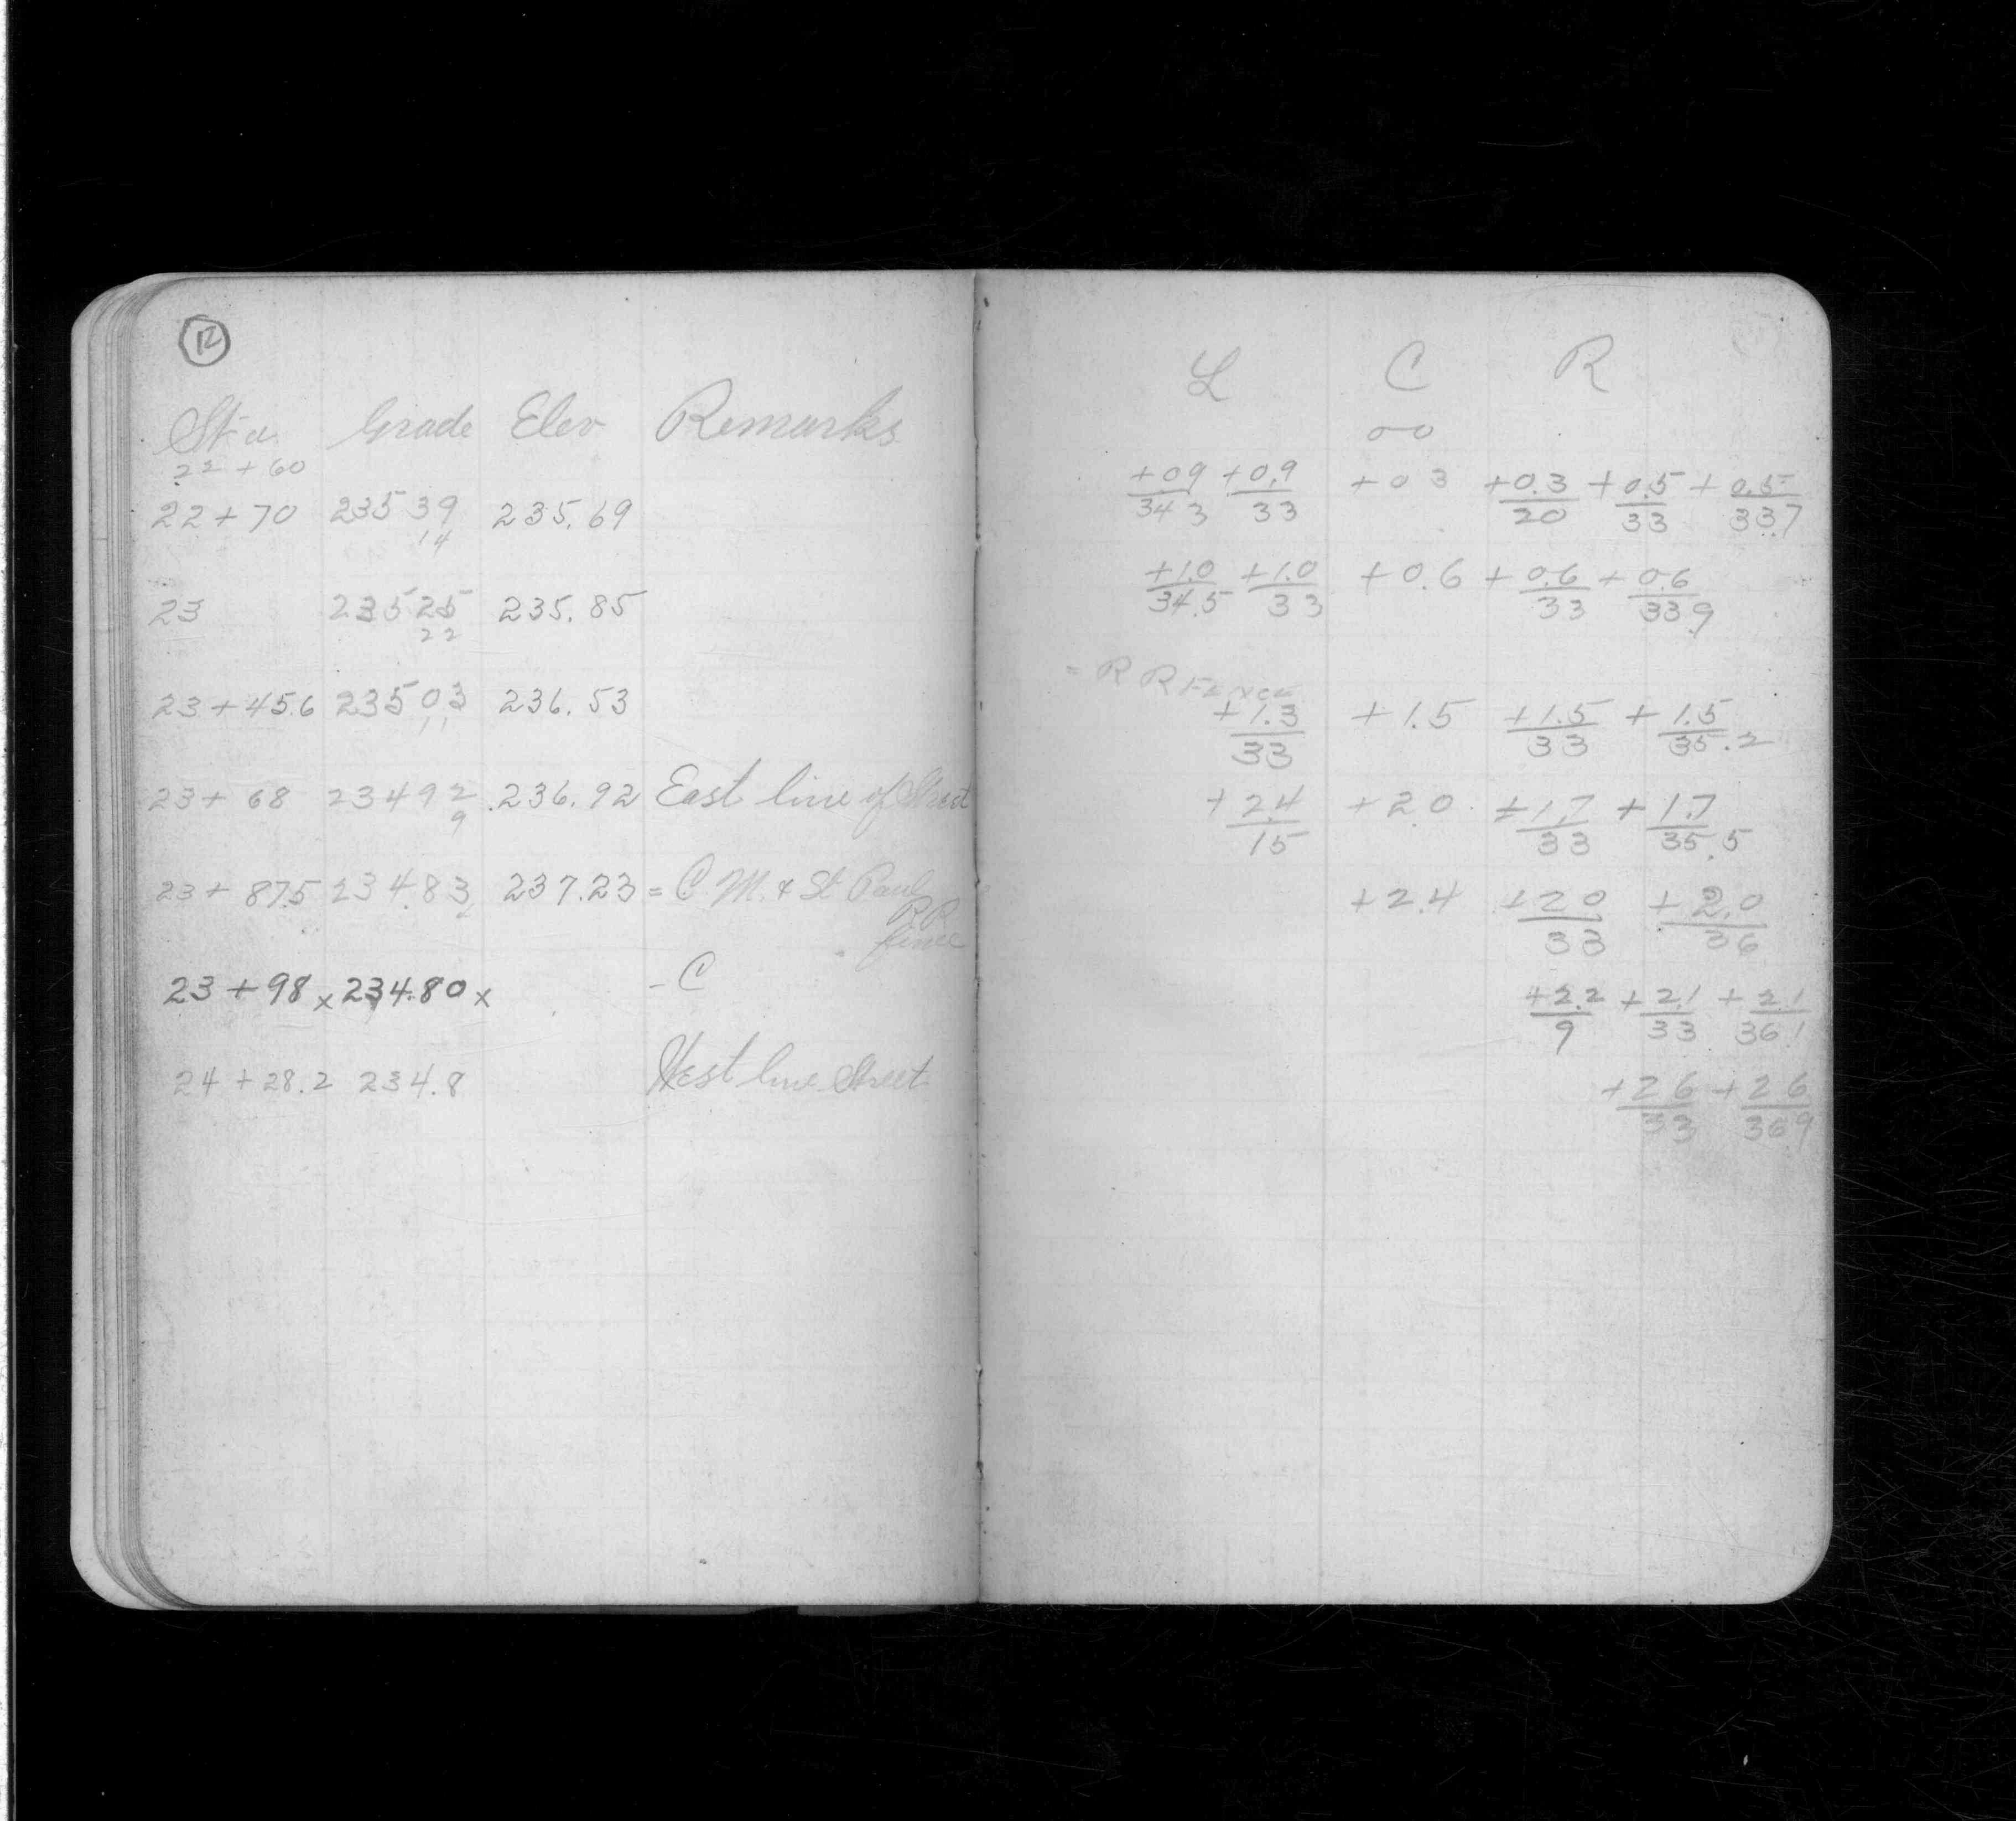 12
Sta. Grade Elev Remarks
22 + 60
22 + 70 235 39 235.69
14
23 235 25 235.85
22
23 + 45.6 235 03 236.53
11
23 + 68 234 92 236.92 East line of Street
9
23 + 87.5 234.83 237.23 = C. M. & St Paul
RR
fence
23 + 98 x 234.80 x - C
24 + 28.2 234.8 West line Street
L C R
00
+09/34 3 +0.9/33 +0 3 +0.3/20 +0.5/33 +0.5/33.7
+1.0/34.5 +1.0/33 +0.6 +0.6/33 +0.6/33.9
= R R Fence
+1.3/33 +1.5 +1.5/33 +1.5/35.2
+2.4/15 +2.0 +1.7/33 +1.7/35.5
+2.4 +2 0/33 +2.0/36
+2.2/9 +2.1/33 +2.1/36.1
+2 6/33 +2 6/36 9